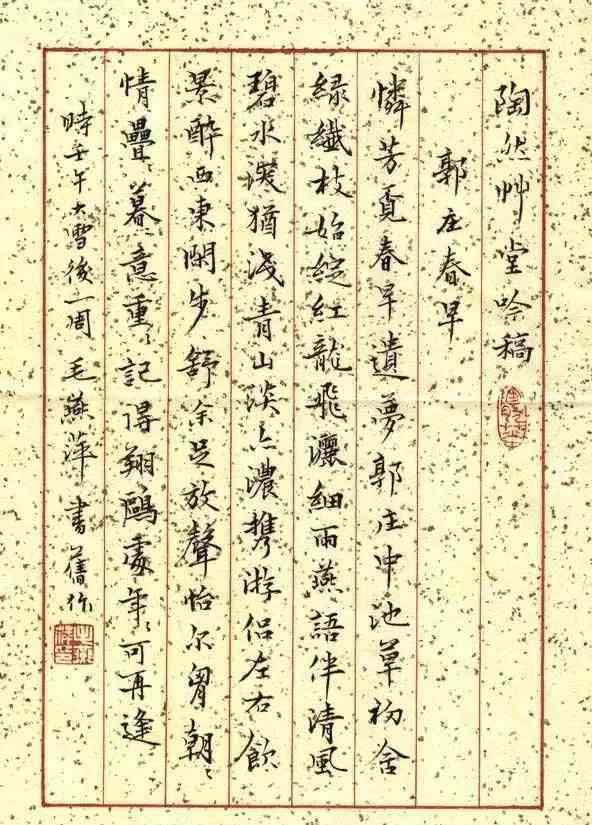 陶然艸堂吟稿
郭庄春早
憐芳覓春早遺夢郭庄中池草初含
緑纖枝始綻紅龍飛灑細雨燕語伴清風
碧水深猶浅青山淡亦濃携游侣左右飲
景醉西東閑步舒余足放聲怡尔胷朝〻
情疊〻暮〻意重〻記得翔鷗處年〻可再逢
時壬午大雪後一周毛燕萍書舊作